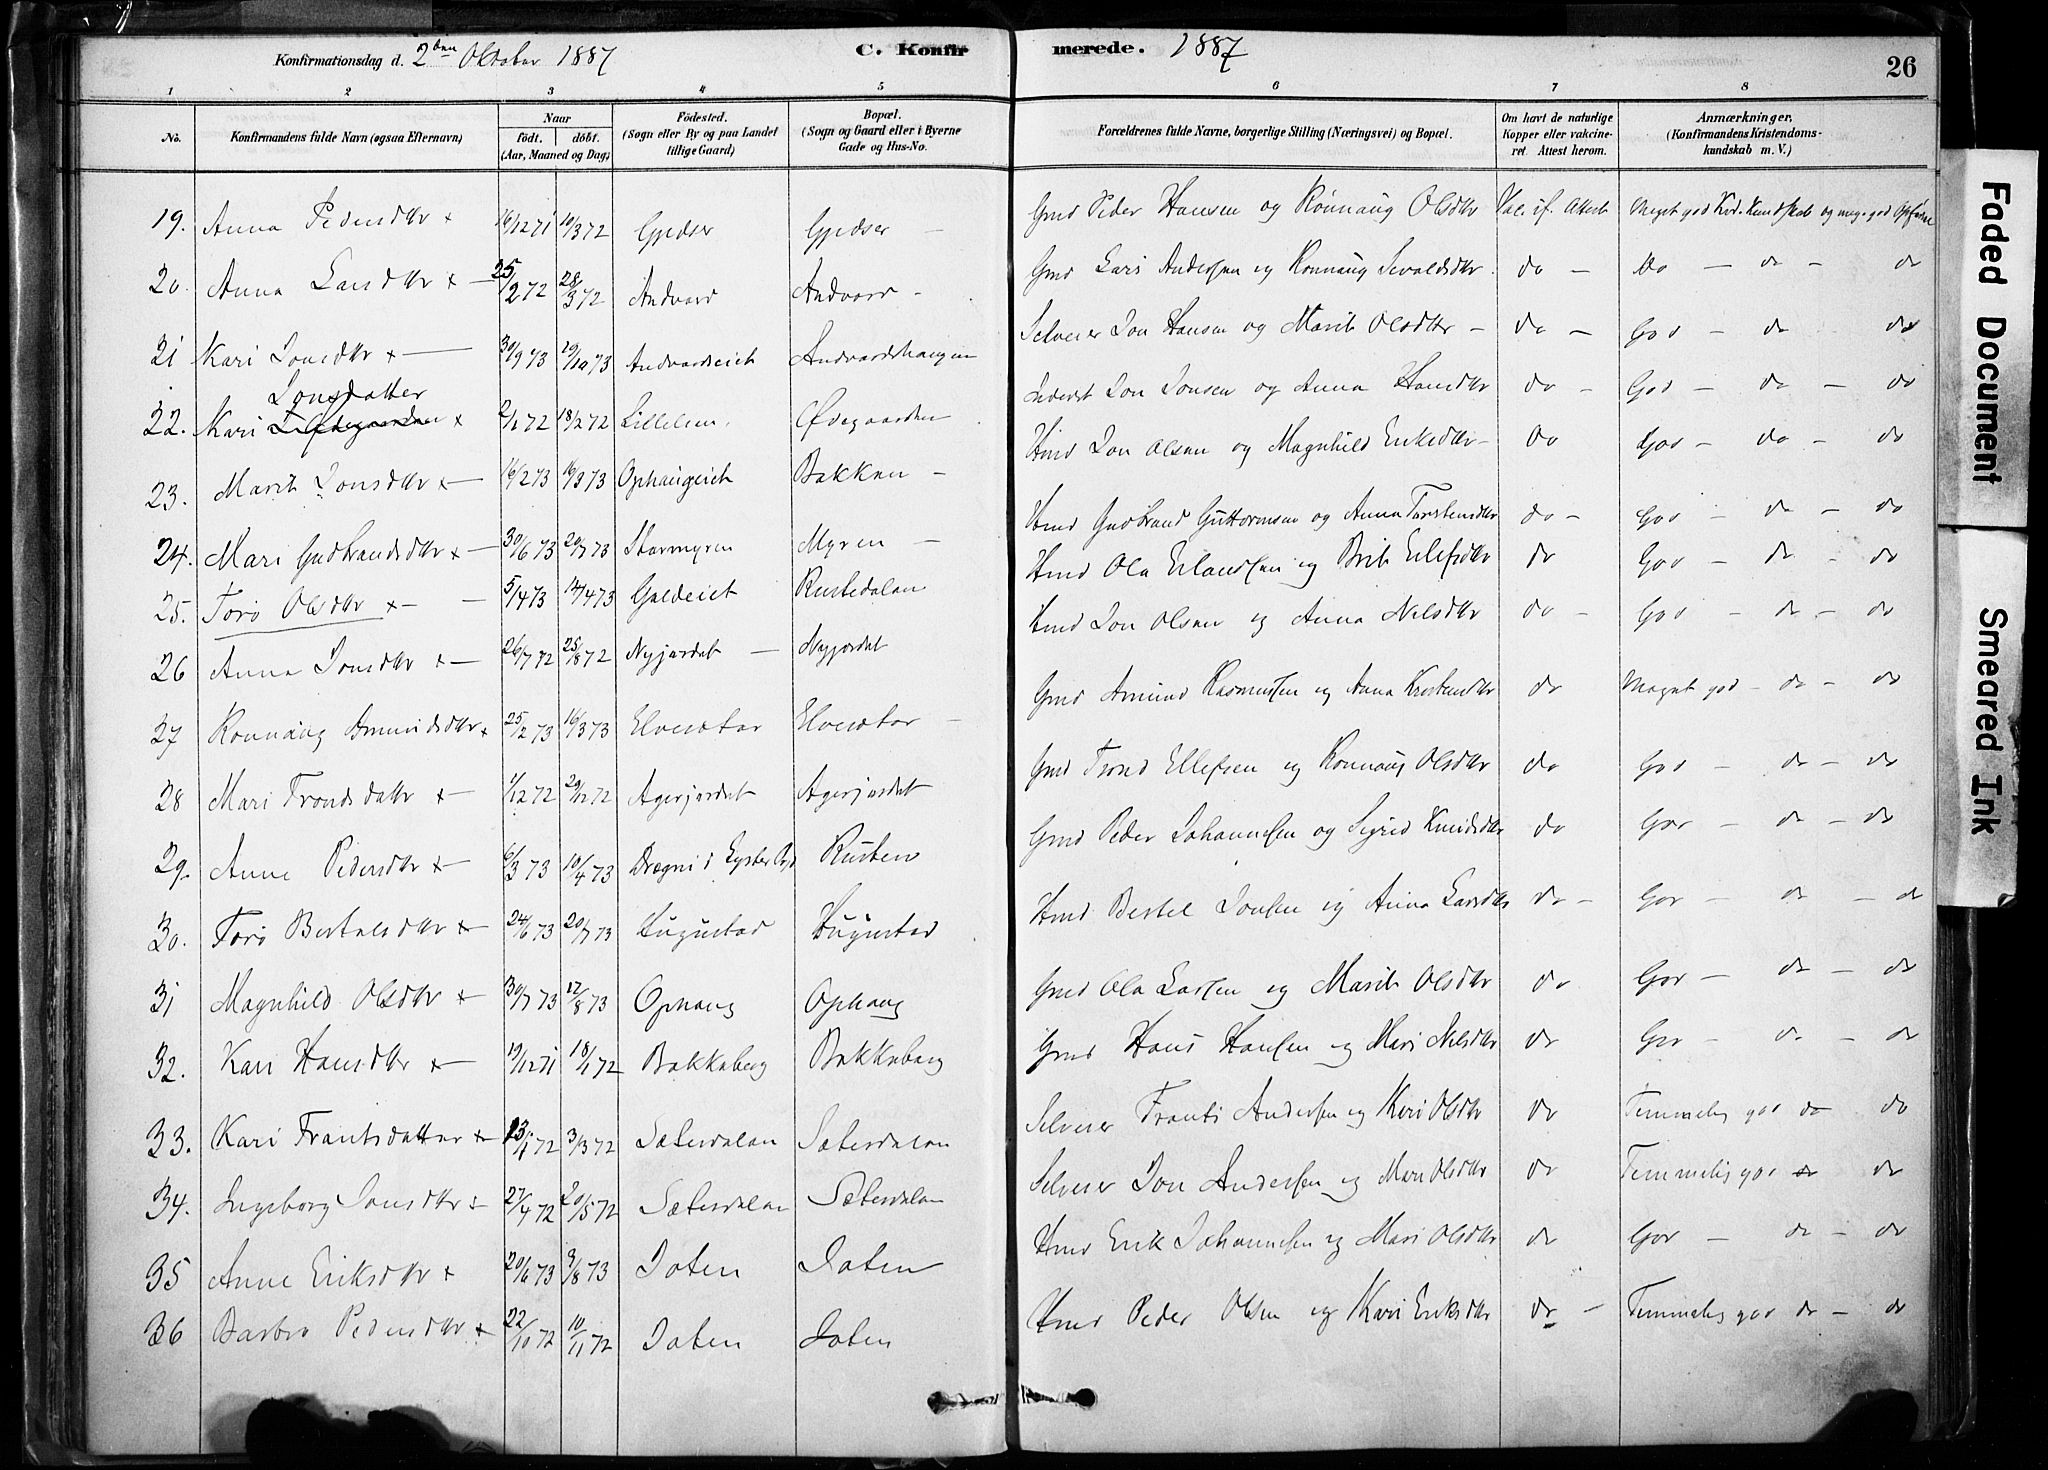 Konfirmationsdag d. 2den Oktober 1887
C. Konfirmerede. 1887
26
1 2 3 4 5 6 7 8
No. Konfirmandens fulde Navn (ogsaa Efternavn) Naar født. døbt. (Aar, Maaned og Dag) Fødested. (Sogn eller By og paa Landet tillige Gaard) Bopæl. (Sogn og Gaard eller i Byerne Gade og Hus-No. Forældrenes fulde Navne, borgerlige Stilling (Næringsvei) og Bopæl. Om havt de naturlige Kopper eller vakcineret. Attest herom. Anmærkninger. (Konfirmandens Kristendomskundskab m. V.)
19. Anna Pedersdtr x 16/12 71 10/3 72 Gjedser Gjedser – Gmd Peder Hansen og Rønnaug Olsdtr Vac. if. Attest Meget god Kr. Kundskab og meg. god Opførsel
20. Anna Larsdtr x – 25/2 72 28/3 72 Andvord Andvord – Gmd Lars Andersen og Ronnaug Sevaldsdtr. do – Do – do – do
21 Kari Jonsdtr x – 30/9 73 19/10 73 Andvordseiet Andvordshaugen Selveier Jon Hansen og Marit Olsdtr – do – God – do do
22. Kari Jonsdatter x 2/1 72 18/2 72 Lillelien. Ødegaarden Inderst Jon Jonsen og Anna Hansdtr do – God – do – do
23. Marit Jonsdtr x – 16/2 73 16/3 73 Ophaugeiet Bakken – Hmd Jon Olsen og Magnhild Eriksdtr – do God – do – do
24. Mari Gudbrandsdtr x – 30/6 73 20/7 73 Stormyren Myren – Hmd Gudbrand Guttormsen og Anna Torstensdtr do – God – do – do
25. Toro Olsdtr x – – 5/4 73 14/4 73 Galdeeiet Rustedalen Hmd Ola Erlandsen og Brit Ellefsdtr do God – do – do
26 Anna Jonsdtr x – 26/7 72 25/8 72 Nyjordet – Nyjordet Hmd Jon Olsen og Anna Nilsdtr do – God – do – do
27 Ronnaug Amundsdtr x 25/2 73 16/3 73 Elvesæter Elvesæter – Gmd Amund Rasmussen og Anna Kristensdtr do Meget god – do – do
28 Mari Trondsdattr x – 1/12 72 29/12 72 Agerjordet Agerjordet Gmd Trond Ellefsen og Ronnaug Olsdtr do God – do – do
29. Anne Pedersdtr x – 6/3 73 10/4 73 Drægni i Lyster Rusten Gmd Peder Johannesen og Sigrid Knudsdtr do God – do – do
30. Toro Bertelsdtr x 24/6 73 20/7 73 Hugustad Hugustad Hmd Bertel Jonsen og Anna Larsdtr do – God – do – do
31 Magnhild Olsdtr x – 30/7 73 17/8 73 Ophaug Ophaug Gmd Ola Larsen og Marit Olsdtr do God – do – do
32. Kari Hansdtr x – 19/12 71 18/1 72 Bakkeberg Bakkeberg Gmd Hans Hansen og Mari Nilsdtr do God – do – do
33. Kari Frantsdatter x 13/1 72 3/3 72 Sæterdalen Sæterdalen Selveier Frants Andersen og Kari Olsdtr do Temmelig god do do
34. Ingeborg Jonsdtr x 27/4 72 20/5 72 Sæterdalen Sæterdalen Selveier Jon Andersen og Mari Olsdtr do Temmelig god do do
35 Anne Eriksdtr x 20/6 73 3/8 73 Joten Joten Hmd Erik Johannesen og Mari Olsdtr do God – do – do
36 Barbro Pedersdtr x 22/10 72 10/11 72 Joten Joten Hmd Peder Olsen og Kari Eriksdtr do – Temmelig god do – do
Faded Document
Smeared Ink